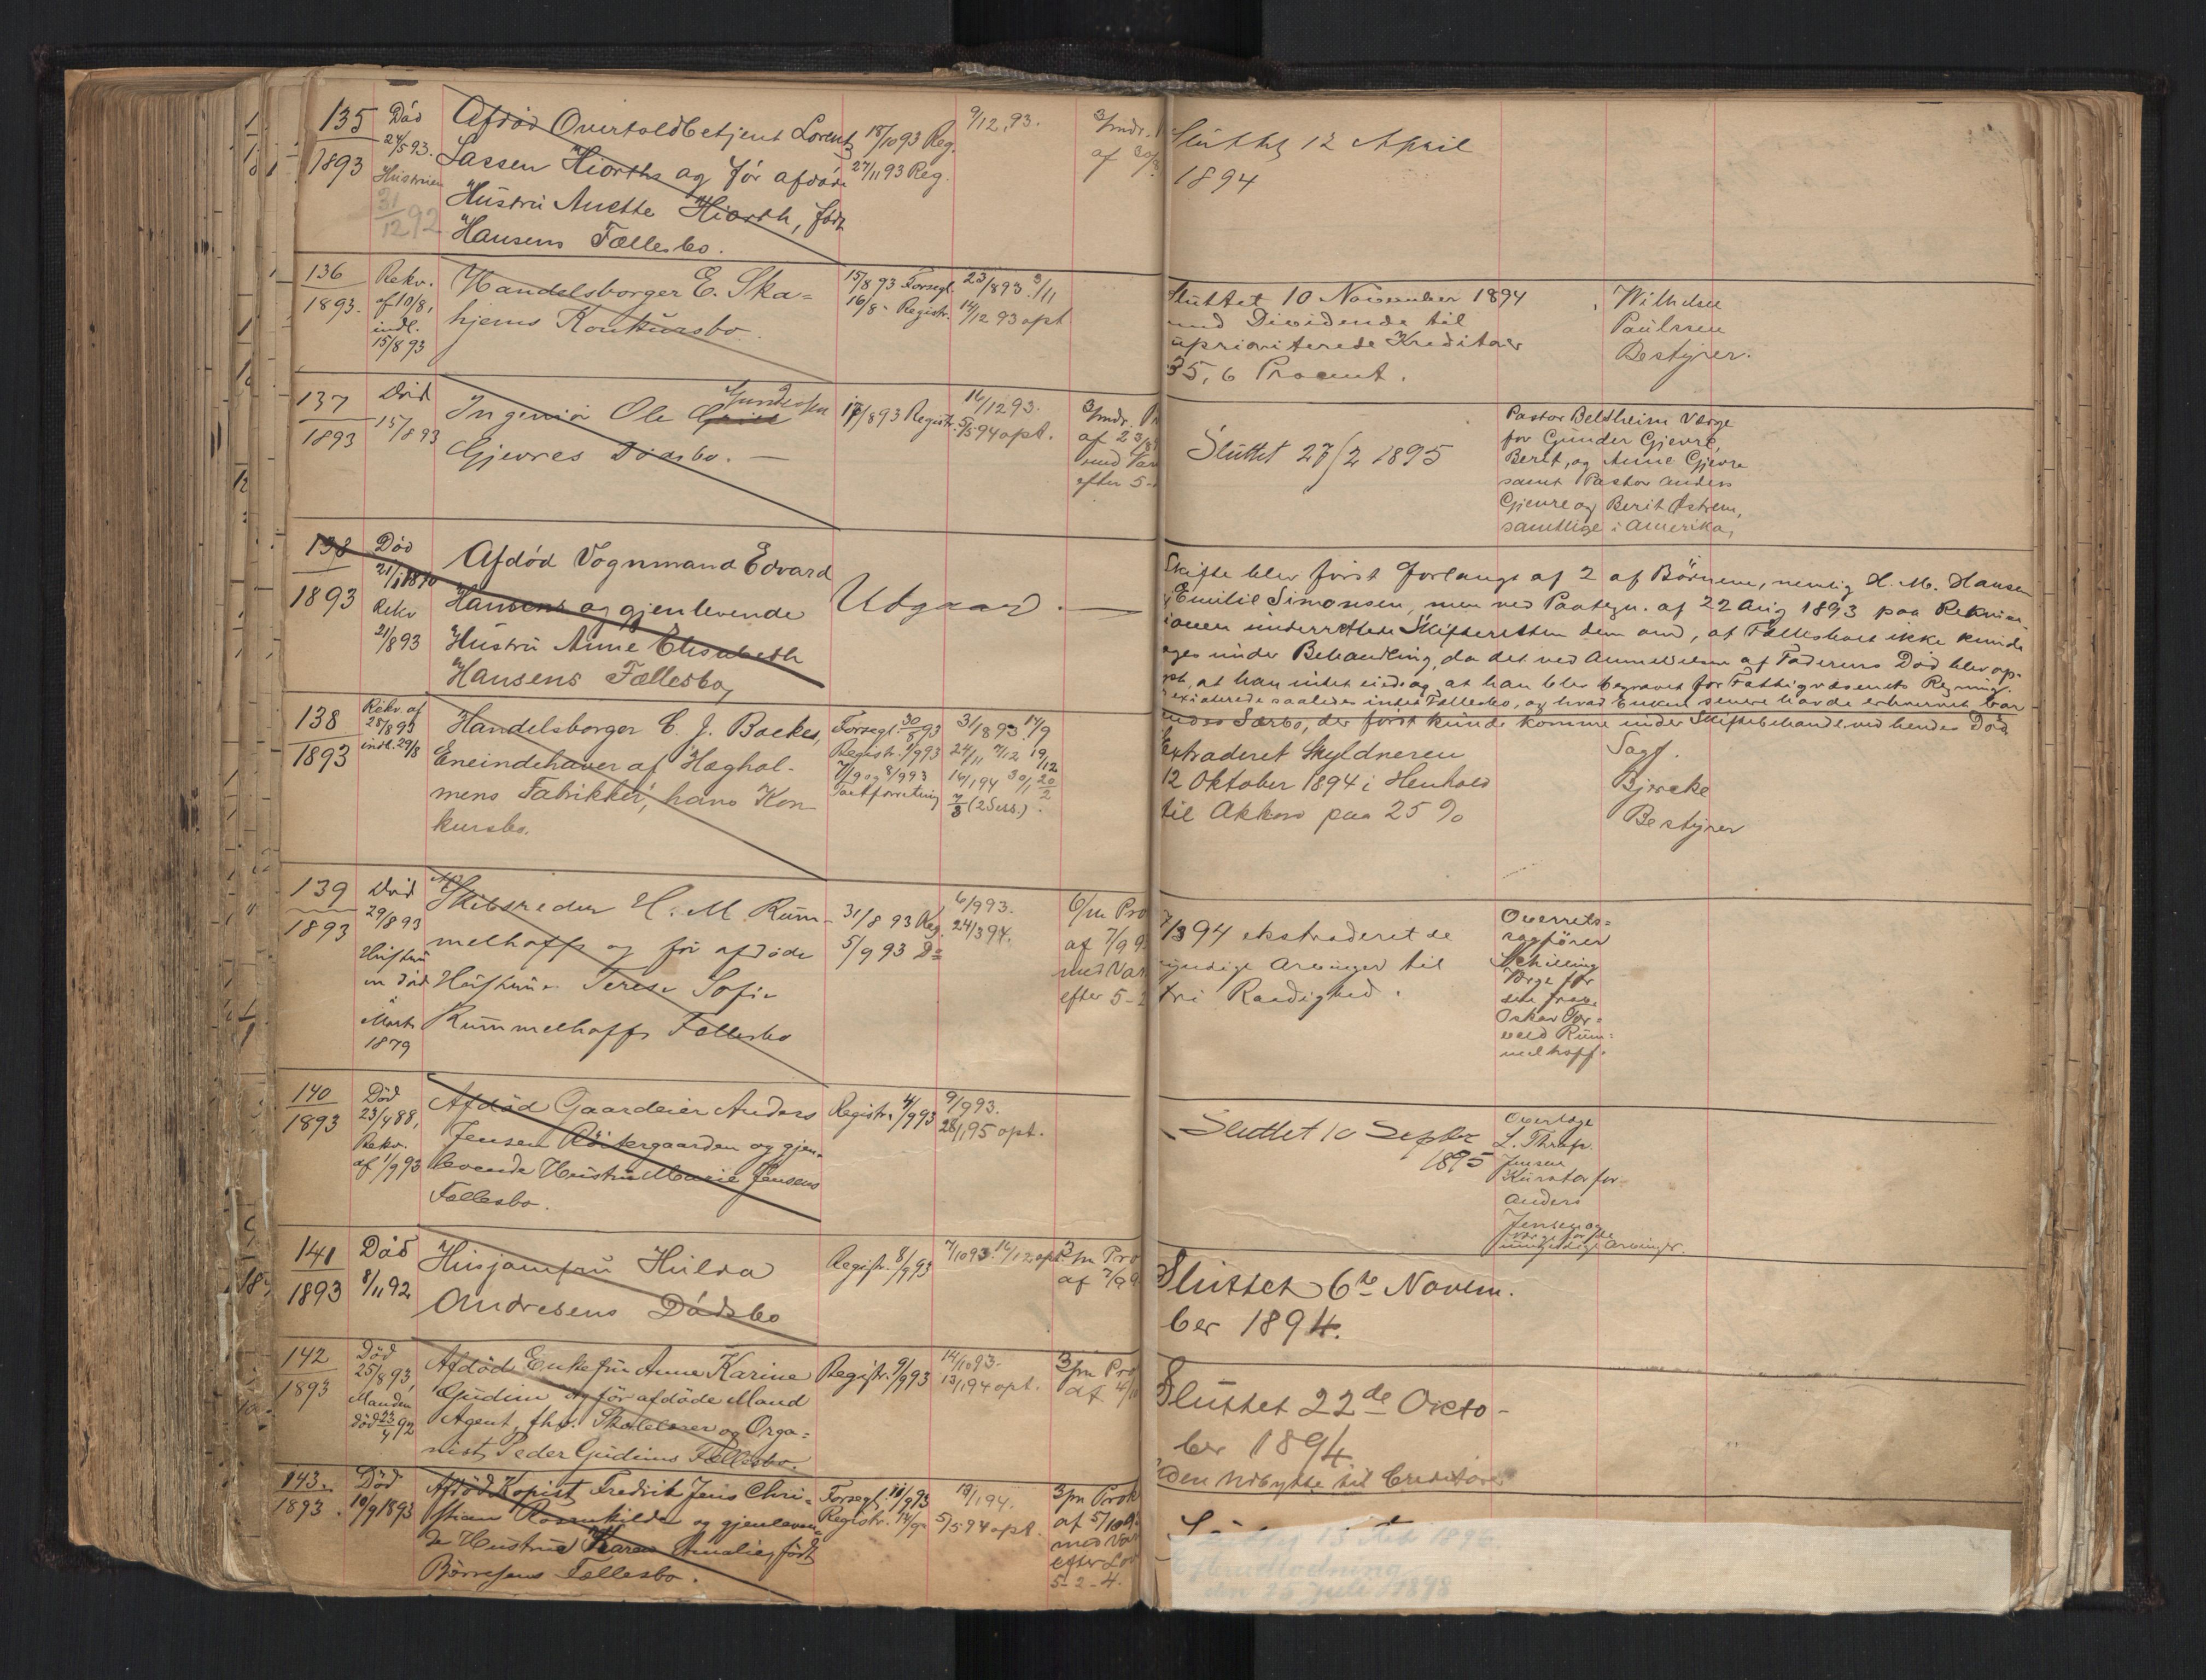 135
1893
Död
24/5 93.
Hustruen
31/12 92
Afdöd Overtoldbetjent Lorentz
Lassen Hiorths og før afdöde
Hustru Anette Hiorth, født
Hansens Fællesbo.
18/10 93 Reg.
27/11 93 Reg.
9/12 93.
3/mdr.
af
Sluttet 12 April
1894
136
1893.
Rekv.
af 10/8,
indl.
15/8 93
Handelsborger E. Ska=
hjems Konkursbo.
15/8 93 Forsegl.
16/8 - Registr.
23/8 93. 3/11
14/12 93 opt
Sluttet 10 November 1894
med Dividende til
uprioriterede Kreditorer
35,6 Procent.
Wilhelm
Paulssen
Bestyrer.
137
1893
Död
15/8 93
Ingeniör Ole Gundersen
Gjevres Dödsbo. —
17/8 93 Registr.
16/12 93.
5/5 94 opt.
3/mdr.
af 23/8
med Var
efter 5-
Sluttet 27/2 1895
Pastor Beldheim Værge
for Gunder Gjevre,
Berit, og Anne Gjevre
samt Pastor Anders
Gjevre og Berit Østrem,
samtlige i Amerika,
138
1893
Död
21/1 1890
Rekv
21/8 93
Afdöd Vognmand Edvard
Hansens og gjenlevende
Hustru Anne Elisabeth
Hansens Fællesbo,
Udgaar. —
Skifte blev först forlangt af 2 af Börnene, nemlig H. M. Hansen
Emilie Simonsen, men ved Paategn. af 22 Aug 1893 paa Rekvisi-
tionen underrettede Skifteretten dem om, at Fællesboet ikke kunde
tages under Behandling, da det ved Anmeldelsen af Faderens Död blev op-
gt, at han intet eied og at han blev begravet for Fattigvæsenets Regning.
existerede saaledes intet Fællesbo, og hvad Enken senere havde erhvervet var
endes Særbo, der först kunde komme under Skiftebehandl. ved hendes Död.
138
1893
Rekv. af
28/8 93
indl. 29/8
Handelsborger C. J. Backes,
Eneindehaver af Hæghol-
mens Fabrikker, hans Kon-
kursbo.
Forsegl. 30/8 93
Registr. 1/9 93
7/9 og 8/9 93
Taxtforretning
31/8 93. 14/9
24/11 7/12 19/12
16/1 94 30/1 20/2
7/3 (2 Sess.).
Extraderet Skyldneren
12 Oktober 1894 i Henhold
til Akkord paa 25 %
Sagf.
Bjercke
Bestyrer
139
1893
Död
29/8 93
Hustru
en död
Marts
1879
Skibsreder H. M. Rum-
melhoffs og för afdöde
Hustrue Terese Sofie
Rummelhoffs Fællesbo
31/8 93 Reg.
5/9 93 Do
6/9 93.
24/3 94.
6/m Pro
af 7/9 9
med Var
efter 5-2
7/3 94 ekstraderet de
myndige Arvinger til
fri Raadighed.
Overrets=
sagförer
Schilling
Værge for
Oskar Tor=
vald Rum=
melhoff.
140
1893
Död
23/4 88,
Rekv.
af 1/9 93
Afdöd Gaardeier Anders
Jensen Rödkergaarden og gjen-
levende Hustru Marie Jensens
Fællesbo.
Registr. 4/9 93
9/9 93.
28/1 95 opt.
Sluttet 10 Septbr
1895
Overlæge
L. Thrap.
Jensen
Kurator for
Anders
Jensen og
Værge for de
umyndige Arvinger.
141
1893
Död
8/11 92
Husjomfru Hulda
Andresens Dödsbo
Registr. 8/9 93
7/10 93. 16/12 opt.
3/m Pro
af 7/9 9
Sluttet 6te Novem-
ber 1894.
142
1893
Död
25/8 93,
Manden
död 23/4 92
Afdöd Enkefru Anne Karine
Gudim og för afdöde Mand
Agent, fhv. Skolelærer og Orga=
nist, Peder Gudims Fællesbo.
Registr. 9/9 93
14/10 93.
13/1 94 opt.
3/m Pro
af 4/10
Sluttet 22de Okto-
ber 1894
uden Udbytte til Creditorer
143.
1893.
Död
10/9 1893
Afdöd Kopist Fredrik Jens Chri=
stian Rosenkilde og gjenleven=
de Hustrue Karen Amalie, født
Börresens Fællesbo.
Forsegl. 11/9 93
Registr. 14/9
13/1 94.
5/5 94 opt.
3/m Prok
af 5/10 9
med Var
efter Lov
5-2-4.
Efterudlodning
den 25 Juli 1898